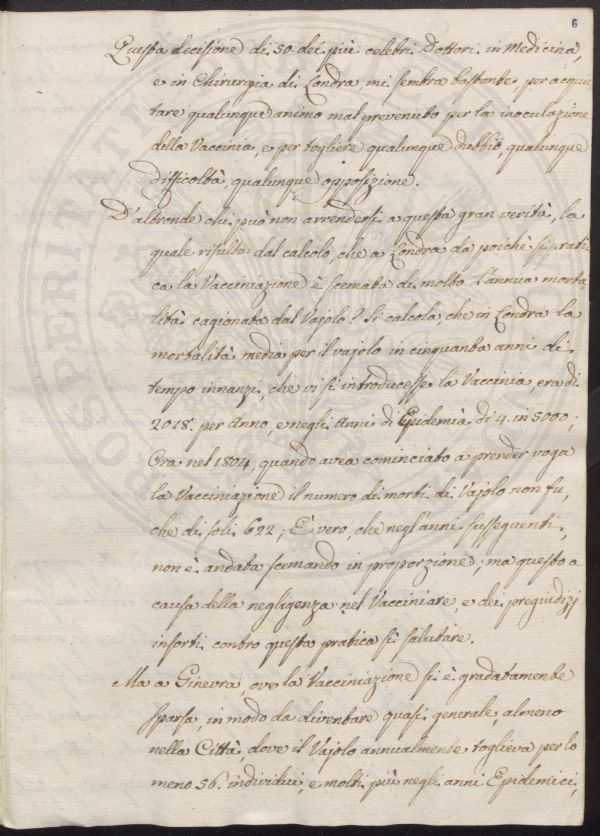 6
Questa decisione di 50. dei più celebri Dottori in Medicina,
e in Chirurgia di Londra, mi sembra bastante per acquie
tare qualunque animo mal prevenuto per la inoculazione
della Vaccinia, e per togliere qualunque dubbio, qualunque
difficoltà, qualunque opposizione.
D'altronde chi può non arrendersi a questa gran verità, la
quale risulta dal calcolo, che a Londra da poichè si prati
ca la Vacciniazione è scemata di molto l'annua morta
lità cagionata dal Vajolo? Si calcola, che in Londra la
mortalità media per il vajolo in cinquanta anni di
tempo innanzi, che vi si introducesse la Vaccinia, era di
2018. per Anno, e negli Anni di Epidemia di 4. in 5000;
Ora nel 1804, quando avea cominciato a prender voga
la Vacciniazione il numero di morti di Vajolo non fu,
che di soli 622; È vero, che negl'anni susseguenti,
non è andata scemando in proporzione, ma questo a
causa della negligenza nel Vacciniare, e dei pregiudizj
insorti contro questa pratica sì salutare.
Ma a Ginevra, ove la Vacciniazione si è gradatamente
sparsa, in modo da diventare quasi generale, almeno
nella Città, dove il Vajolo annualmente toglieva per lo
meno 56. individui, e molti più negli anni Epidemici,
PROSPERITATI